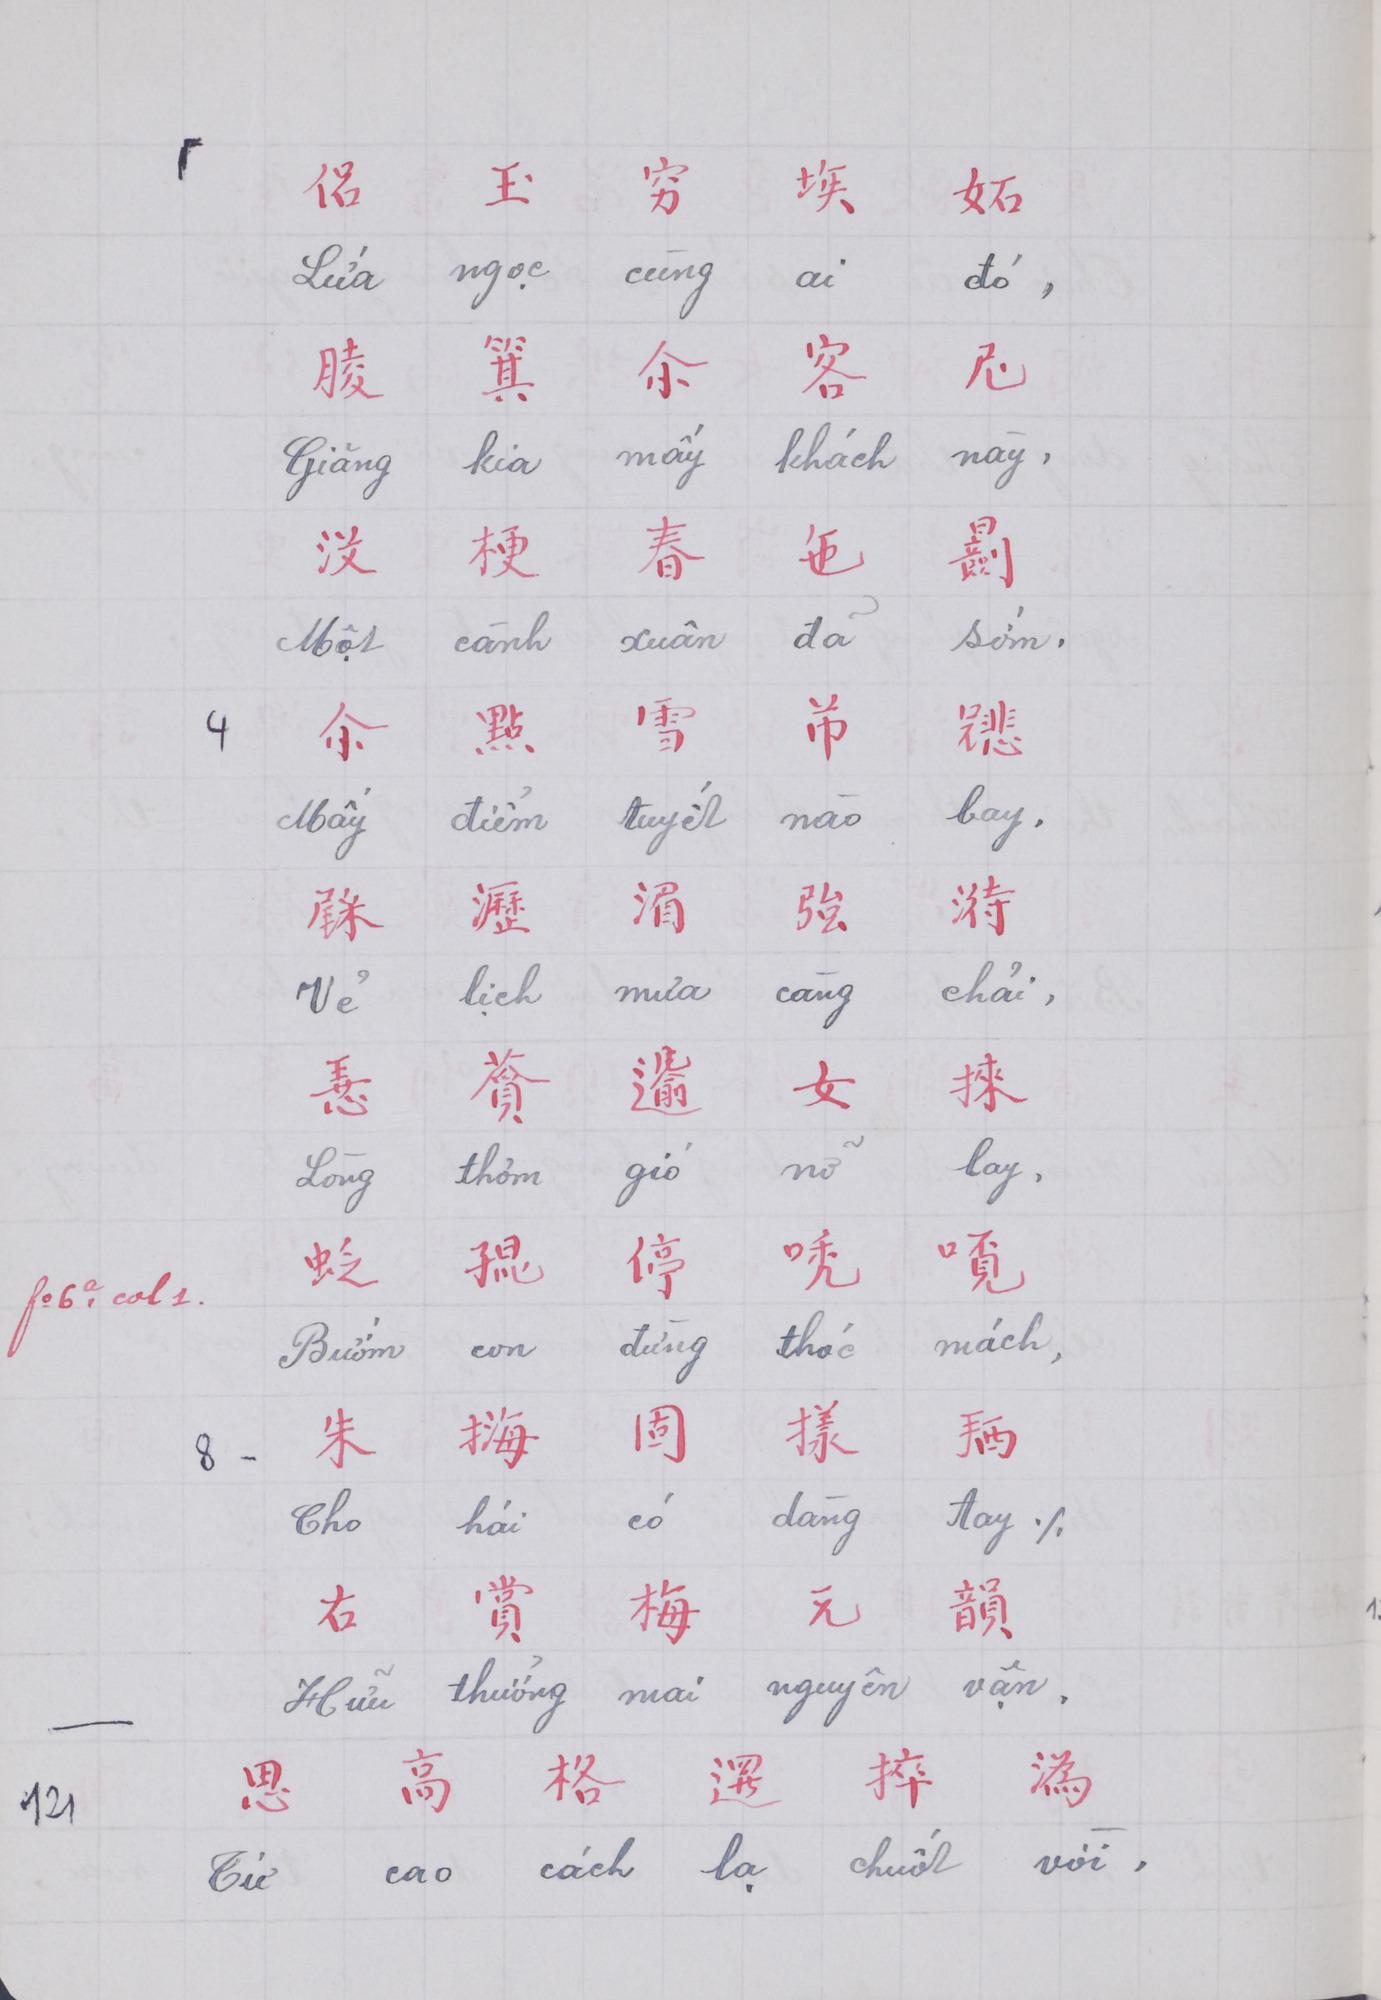 侶 玉 穷 埃 妬
Lứa ngọc cùng ai đó,
𦝄 箕 尒 客 尼
Giăng kia mấy khách này,
没 梗 春 㐌 𣌋
Một cành xuân đã sớm.
4 尒 點 雪 芇 𢒎
Mấy điểm tuyết nào bay.
瀝 湄 強 𣻆
Vẻ lịch mưa càng chải,
𢚸 𦹳 𨔍 女 捸
Lòng thơm gió nỡ lay,
𧊉 𡥵 停 唬 𠴔
fº 6ª col 1.
Bướm con đừng thóc mách,
8 - 朱 𢱖 固 樣 𢬣
Cho hái có dàng tay ./.
右 賞 梅 元 韻
Hữu thưởng mai nguyên vận.
121 思 高 格 邏 捽 潙
Tứ cao cách lạ chuốt vời,